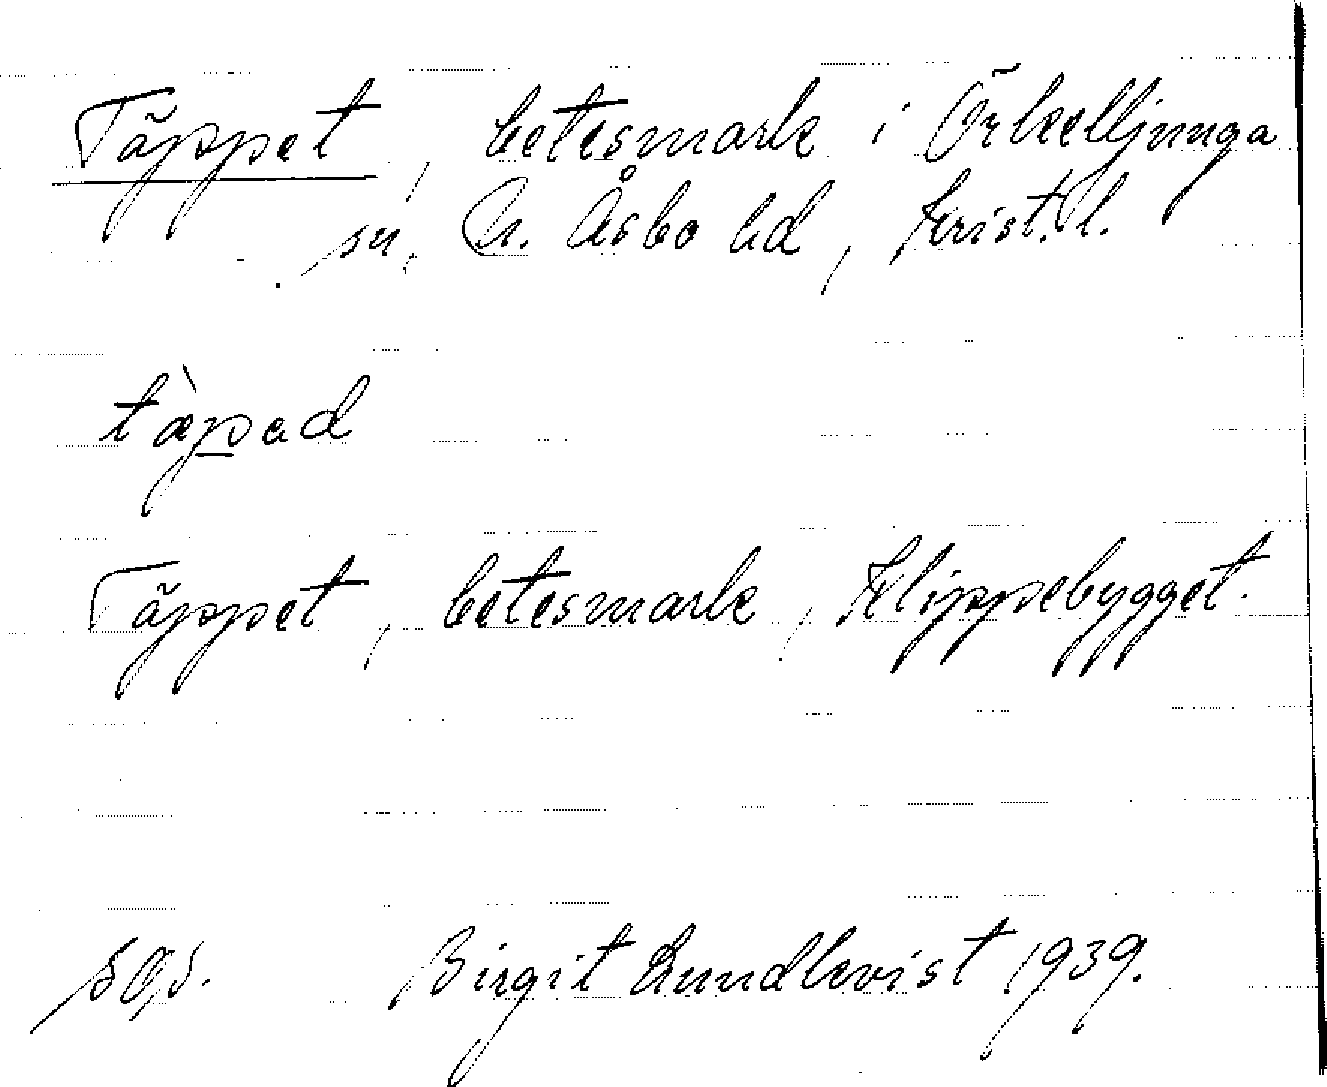 Täppet, betesmark i Örkelljunga
sn, N. Åsbo hd, Krist. l.
tæ̀p̲ad
Täppet, betesmark, Klippebygget.
Birgit Lundkvist 1939.